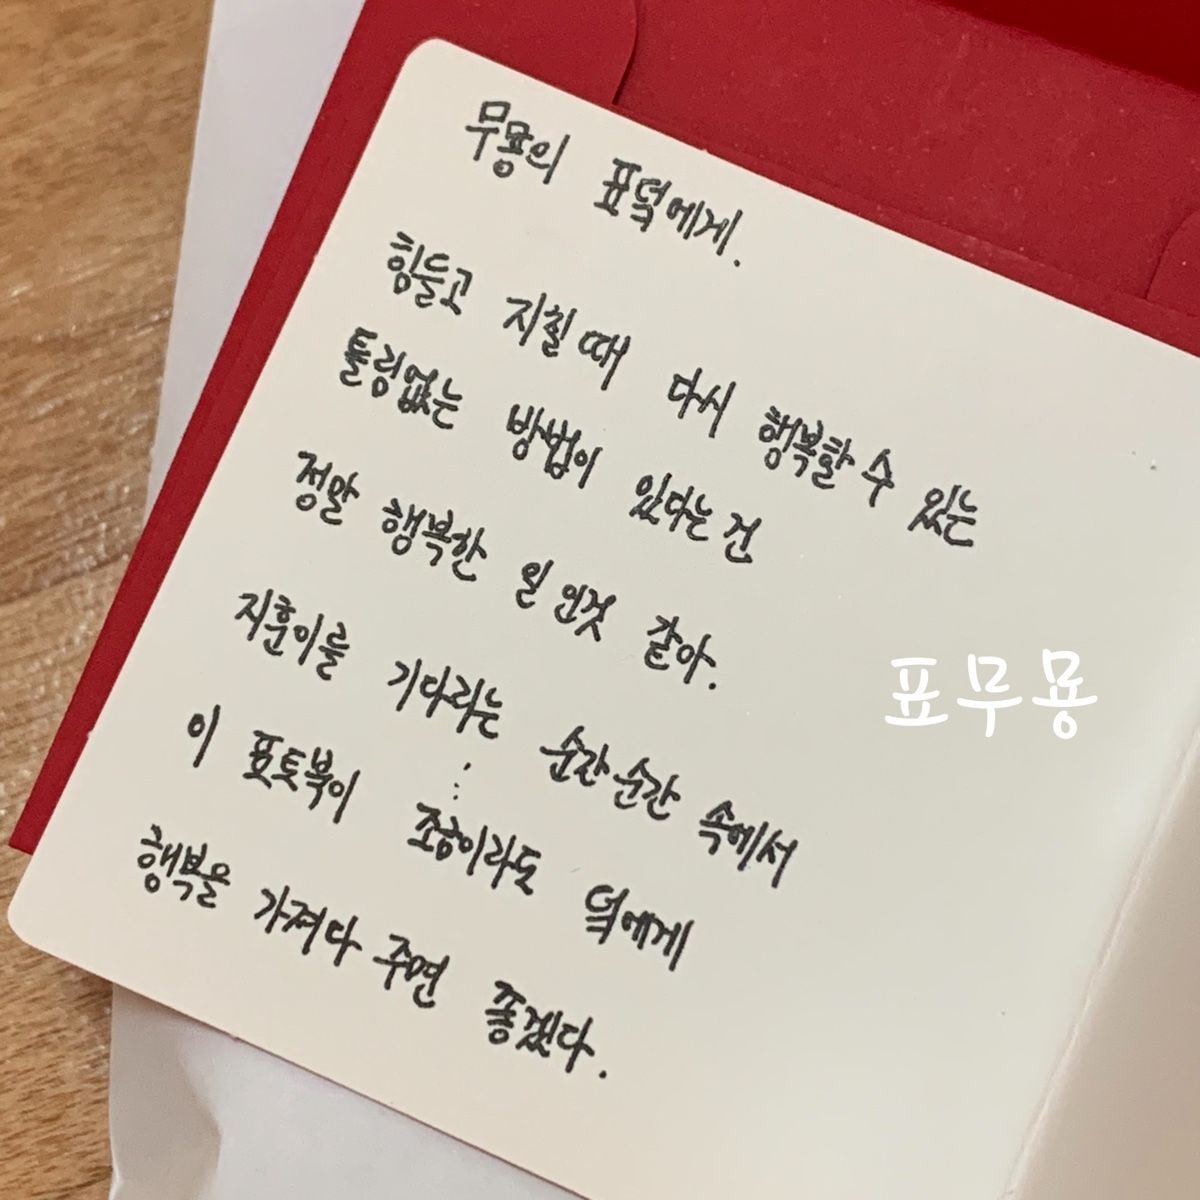 무묭의 표덕에게.
힘들고 지칠때 다시 행복할 수 있는
틀림없는 방법이 있다는 건
정말 행복한 일 인것 같아.
지훈이를 기다리는 순간 순간 속에서
이 포토북이 조금이라도 덕에게
행복을 가져다 주면 좋겠다.
표무묭